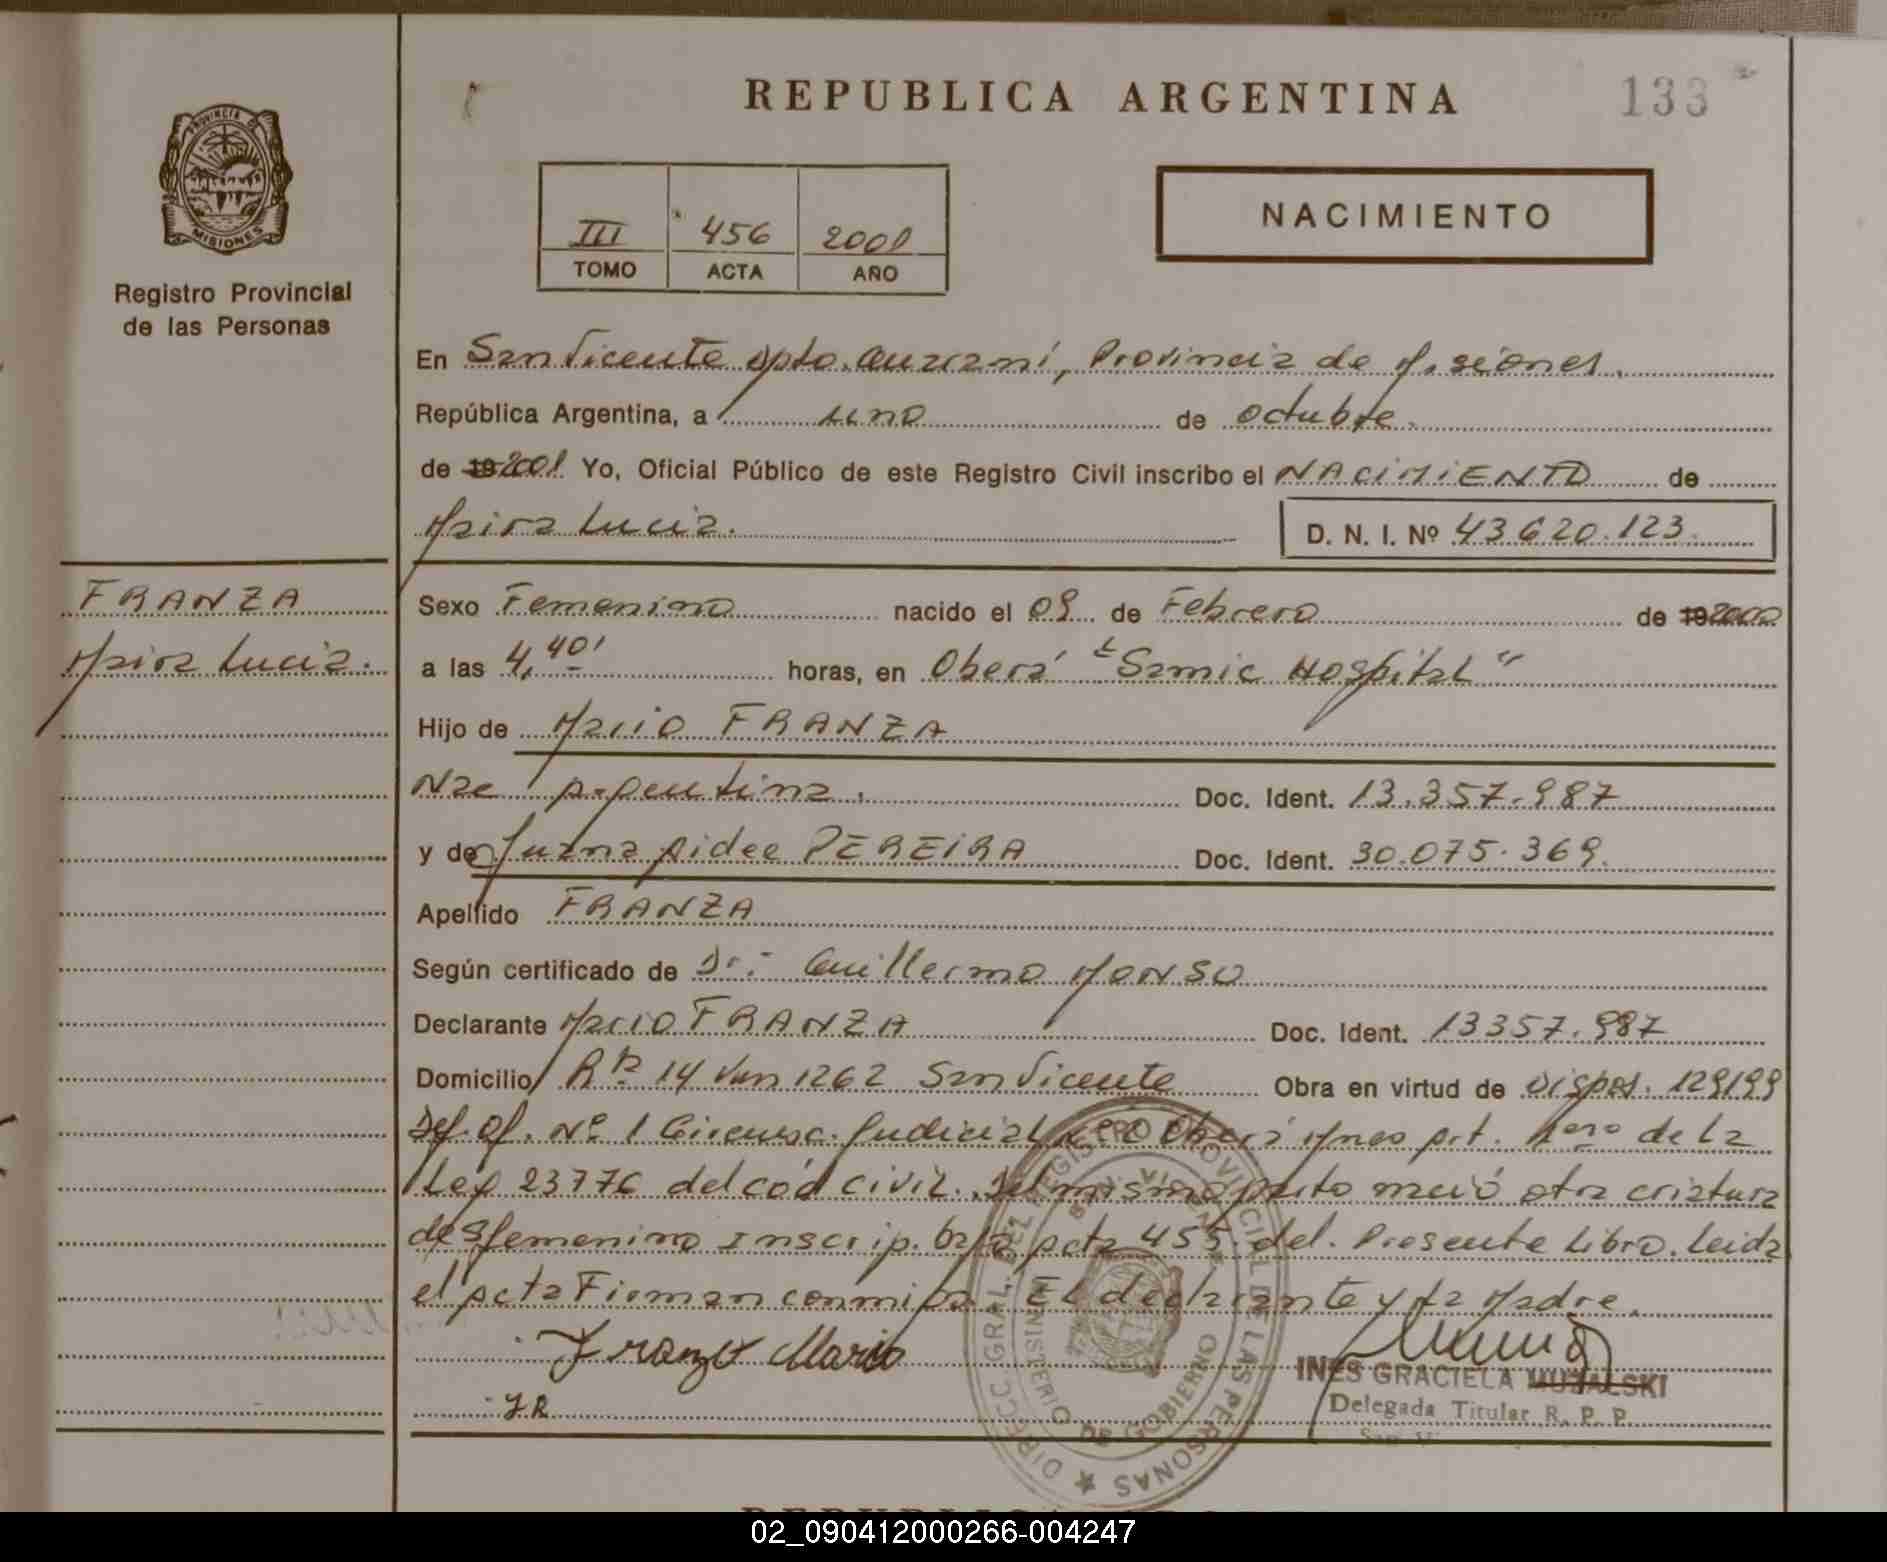 REPUBLICA ARGENTINA
133
PROVINCIA DE
MISIONES
Registro Provincial
de las Personas
III 456 2001
TOMO ACTA AÑO
NACIMIENTO
En San Vicente Dpto. Guaraní, Provincia de Misiones.
República Argentina, a uno de octubre.
de 19 2001 Yo, Oficial Público de este Registro Civil inscribo el NACIMIENTO de
Maira Lucia.
D. N. I. Nº 43.620.123.
FRANZA
Maira Lucia.
Sexo Femenino nacido el 09 de Febrero de 19 2000
a las 4,40' horas, en Oberá "Samic Hospital"
Hijo de Mario FRANZA
Nac Argentina. Doc. Ident. 13.357.987
y de Juana Aidee PEREIRA Doc. Ident. 30.075.369.
Apellido FRANZA
Según certificado de Dr.- Guillermo MONSO
Declarante Mario FRANZA Doc. Ident. 13357.987
Domicilio Rta 14 Km 1262 San Vicente Obra en virtud de Dispos. 129/99
Def. Of. Nº 1 Circunsc. Judicial Oberá Mnes Art. de la
Ley 23776 del cód civil. Del mismo parto nació otra criatura
de s/femenino Inscrip. bajo Acta 455 del Presente Libro. Leida
el Acta Firman conmigo El declarante y la Madre.
Franza Mario
J.R
INES GRACIELA MUZALSKI
Delegada Titular R. P. P.
DIRECC. GRAL. DEL REGISTRO PROVINCIAL DE LAS PERSONAS
SAN VICENTE
MINISTERIO DE GOBIERNO
02_090412000266-004247